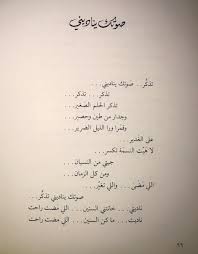 صوتك يناديني
تذكّر .. صوتك يناديني ..
تذكر ... تذكر ...
تذكر الحلم الصغير ..
وجدار من طين وحصير ..
وقمرا ورا الليل الضرير ..
على الغدير ..
لا هبّت النسمة تكسر ..
جيتي من النسيان ..
ومن كل الزمان ..
اللي مضى .. واللي تغيّر ..
صوتك يناديني تذكّر ..
ناديتي .. خانتني السنين .. اللي مضت راحت
ناديت .. ما كن السنين .. اللي مضت راحت